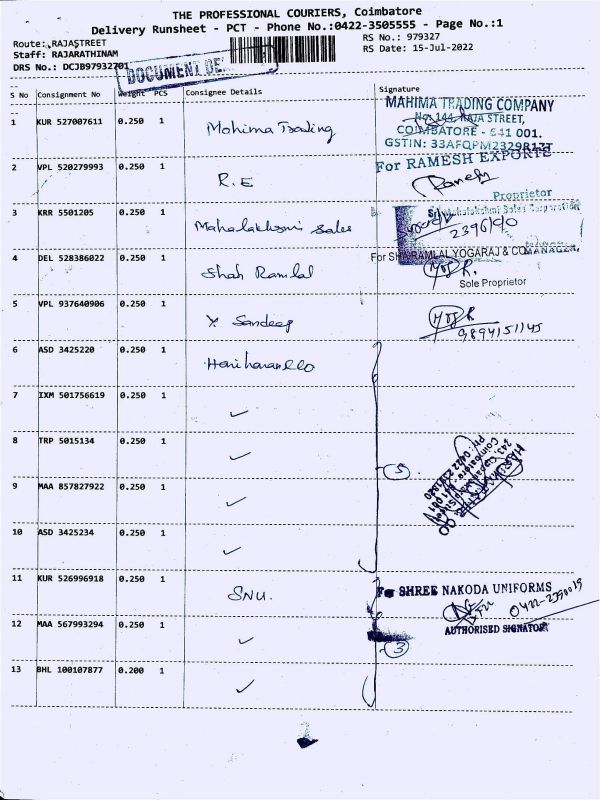 THE PROFESSIONAL COURIERS, Coimbatore
Delivery Runsheet - PCT - Phone No.:0422-3505555 - Page No.:1
Route: RAJASTREET
RS No.: 979327
Staff: RAJARATHINAM
RS Date: 15-Jul-2022
DRS No.: DCJB97932701
DOCUMENT
S No Consignment No Weight PCS Consignee Details Signature
1 KUR 527007611 0.250 1 Mahima Trading
MAHIMA TRADING COMPANY
No: 144, RAJA STREET,
COIMBATORE - 641 001.
GSTIN: 33AFQPM2329R1ZT
2 VPL 520279993 0.250 1 R.E
For RAMESH EXPORTE
Ramesh
Proprietor
3 KRR 5501205 0.250 1 Mahalakshmi Sales
Sri Mahalakshmi Sales Corporation
239690
MANAGER.
4 DEL 528386022 0.250 1 Shah Ramlal
For SHAH RAMLAL YOGARAJ & CO
Sole Proprietor
5 VPL 937640906 0.250 1 Y. Sandeep
9894151145
6 ASD 3425220 0.250 1
7 IXM 501756619 0.250 1 ✓
8 TRP 5015134 0.250 1 ✓
5
9 MAA 857827922 0.250 1 ✓
10 ASD 3425234 0.250 1 ✓
11 KUR 526996918 0.250 1 SNU.
For SHREE NAKODA UNIFORMS
0422-2390019
AUTHORISED SIGNATORY
12 MAA 567993294 0.250 1 ✓
3
13 BHL 100107877 0.200 1 ✓